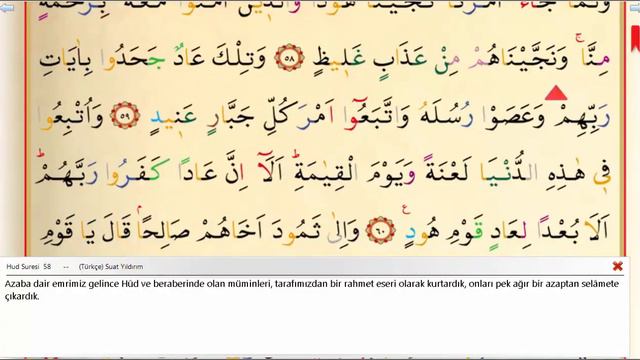 وَلَمَّا جَٓاءَ اَمْرُنَا نَجَّيْنَا هُودًا وَالَّذ۪ينَ اٰمَنُوا مَعَهُ بِرَحْمَةٍ
مِنَّاۚ وَنَجَّيْنَاهُمْ مِنْ عَذَابٍ غَل۪يظٍ ﴿٥٨﴾ وَتِلْكَ عَادٌ جَحَدُوا بِاٰيَاتِ
رَبِّهِمْ وَعَصَوْا رُسُلَهُ وَاتَّبَعُٓوا اَمْرَ كُلِّ جَبَّارٍ عَن۪يدٍ ﴿٥٩﴾ وَاُتْبِعُوا
ف۪ي هٰذِهِ الدُّنْيَا لَعْنَةً وَيَوْمَ الْقِيٰمَةِۜ اَلَٓا اِنَّ عَادًا كَفَرُوا رَبَّهُمْۜ
اَلَا بُعْدًا لِعَادٍ قَوْمِ هُودٍ۟ ﴿٦٠﴾ وَاِلٰى ثَمُودَ اَخَاهُمْ صَالِحًاۢ قَالَ يَا قَوْمِ
Hud Suresi 58 -- (Türkçe) Suat Yıldırım
Azaba dair emrimiz gelince Hûd ve beraberinde olan müminleri, tarafımızdan bir rahmet eseri olarak kurtardık, onları pek ağır bir azaptan selâmete
çıkardık.